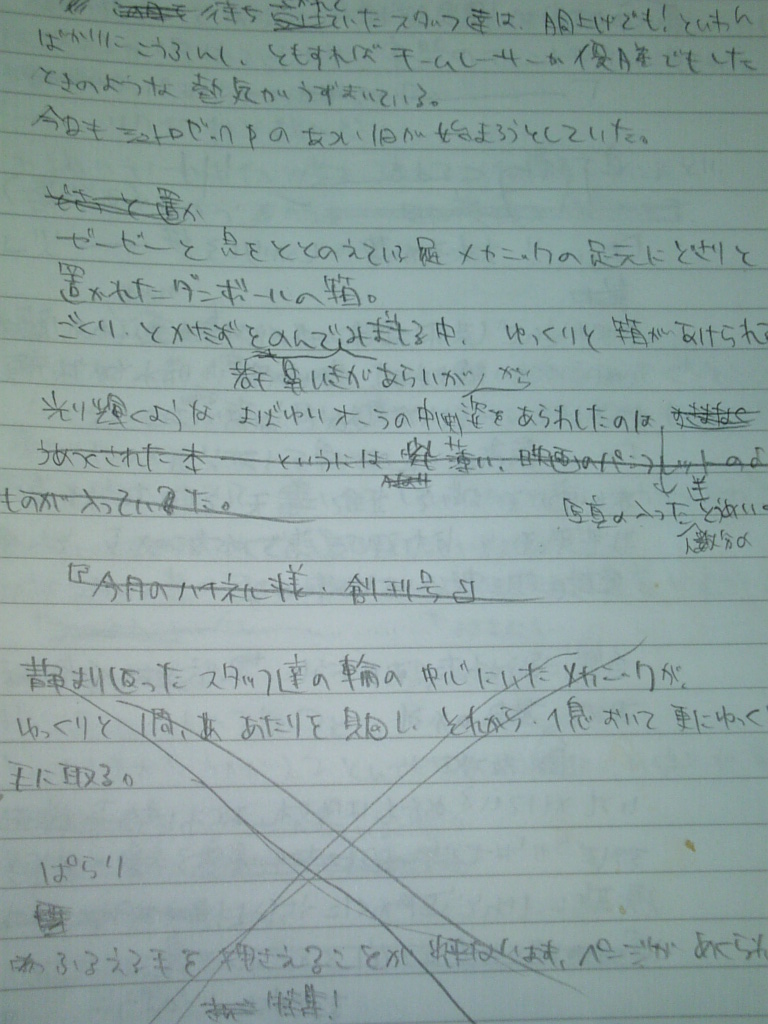 待ち ていたスタッフ達は、胴上げでも!といわん
ばかりにこうふんし、ともすればチームレーサーが優勝でもした
ときのような熱気がうずまいている。
今日もシュトロゼックPの あつい1日が始まろうとしていた。
置か
ゼーゼーと息をととのえている メカニックの足元にどさりと
置かれたダンボールの箱。
ごくり、とかたずをのんでみまもる中、ゆっくりと箱があけられ
鼻いきがあらいが から
光り輝くような まばゆいオーラの中 姿をあらわしたのは、
うめつくされた本 ── というには 薄い、映画のパンフレットのよ
ものが入っていた。
写真の入った とうめい
人数分の
『今月のハイネル様・創刊号』
静まり返ったスタッフ達の輪の中心にいたメカニックが、
ゆっくりと1周、あたりを見回し、それから、1息おいて更にゆっく
手に取る。
ぱらり
ふるえる手を押さえることが 、ページがめくられ
特集!